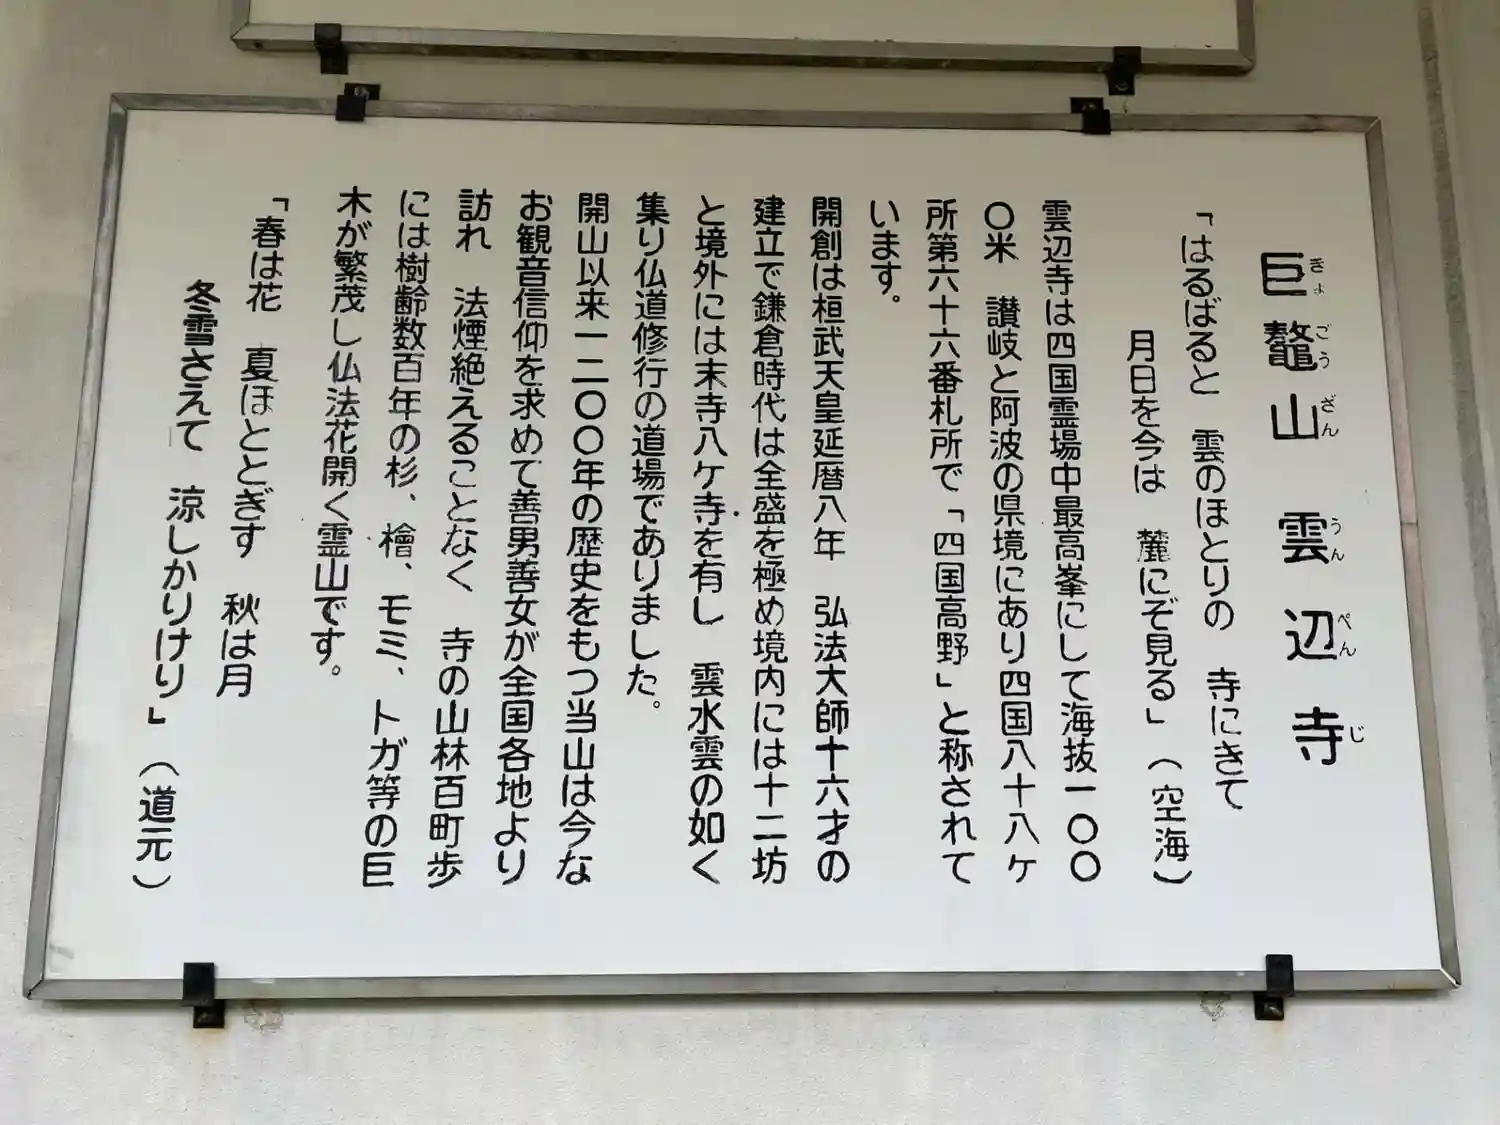 巨鼇山 雲辺寺
きょ ごう ざん うん ぺん じ
「はるばると 雲のほとりの 寺にきて
月日を今は 麓にぞ見る」(空海)
雲辺寺は四国霊場中最高峯にして海抜一〇〇
〇米 讃岐と阿波の県境にあり四国八十八ヶ
所第六十六番札所で「四国高野」と称されて
います。
開創は桓武天皇延暦八年 弘法大師十六才の
建立で鎌倉時代は全盛を極め境内には十二坊
と境外には末寺八ケ寺を有し 雲水雲の如く
集り仏道修行の道場でありました。
開山以来一二〇〇年の歴史をもつ当山は今な
お観音信仰を求めて善男善女が全国各地より
訪れ 法煙絶えることなく 寺の山林百町歩
には樹齢数百年の杉、檜、モミ、トガ等の巨
木が繁茂し仏法花開く霊山です。
「春は花 夏ほととぎす 秋は月
冬雪さえて 涼しかりけり」(道元)